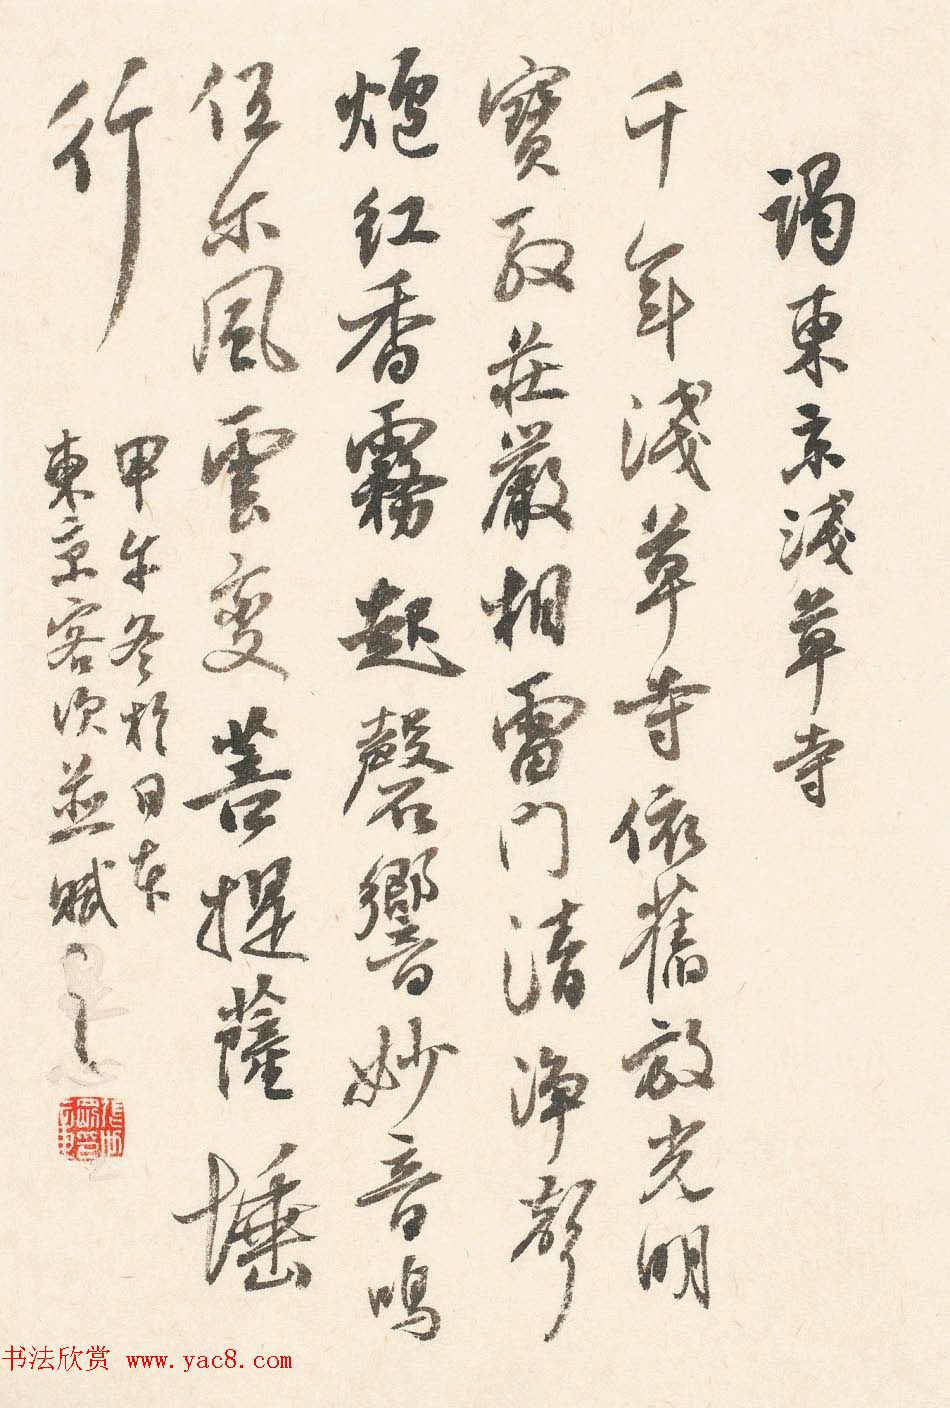 謁東京淺草寺
千年淺草寺依舊放光明
寶殿莊嚴相雷門清淨聲
爐紅香霧起磬響妙音鳴
任尔風雲變菩提薩埵
行
甲午冬於日本
東京客次並賦
书法欣赏 www.yac8.com